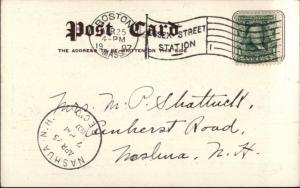 Post Card
THE ADDRESS TO BE WRITTEN ON THIS SIDE
BOSTON
25
4-PM
1907
MASS.
ESSEX STREET
STATION
1
Mrs. M. P. Shattuck,
Amherst Road,
Nashua, N. H.
NASHUA N.H.
APR 25
7 PM
1907
REC'D